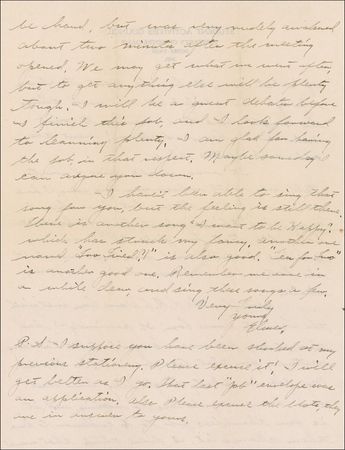 be hard, but was very rudely awakened
about two minutes after the meeting
opened. We may get what we went after,
but to get anything else will be plenty
tough. I will be a great debater before
I finish this job, and I look forward
to learning plenty. I am glad for having
the job in that respect. Maybe someday I
can argue you down.
I haven't been able to sing that
song for you, but the feeling is still there.
There is another song "I want to be Happy"
which has struck my fancy, another one
named is also good. "Tea for two"
is another good one. Remember me once in
a while dear, and sing these songs a few.
Very Truly
Yours
Elmer.
P.S. - I suppose you have been shocked at my
previous stationery. Please excuse it! I will
get better as I go. That last "job" envelope was
an application. Also Please excuse the blots, they
are in answer to yours.